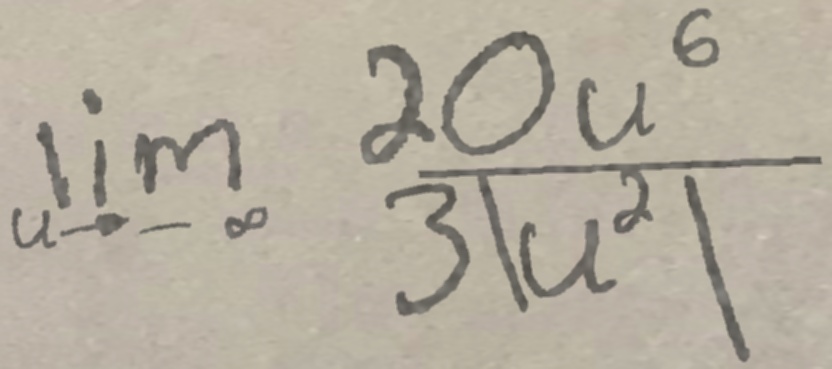 \lim_{u \to -\infty} \frac{20u^6}{3|u^2|}